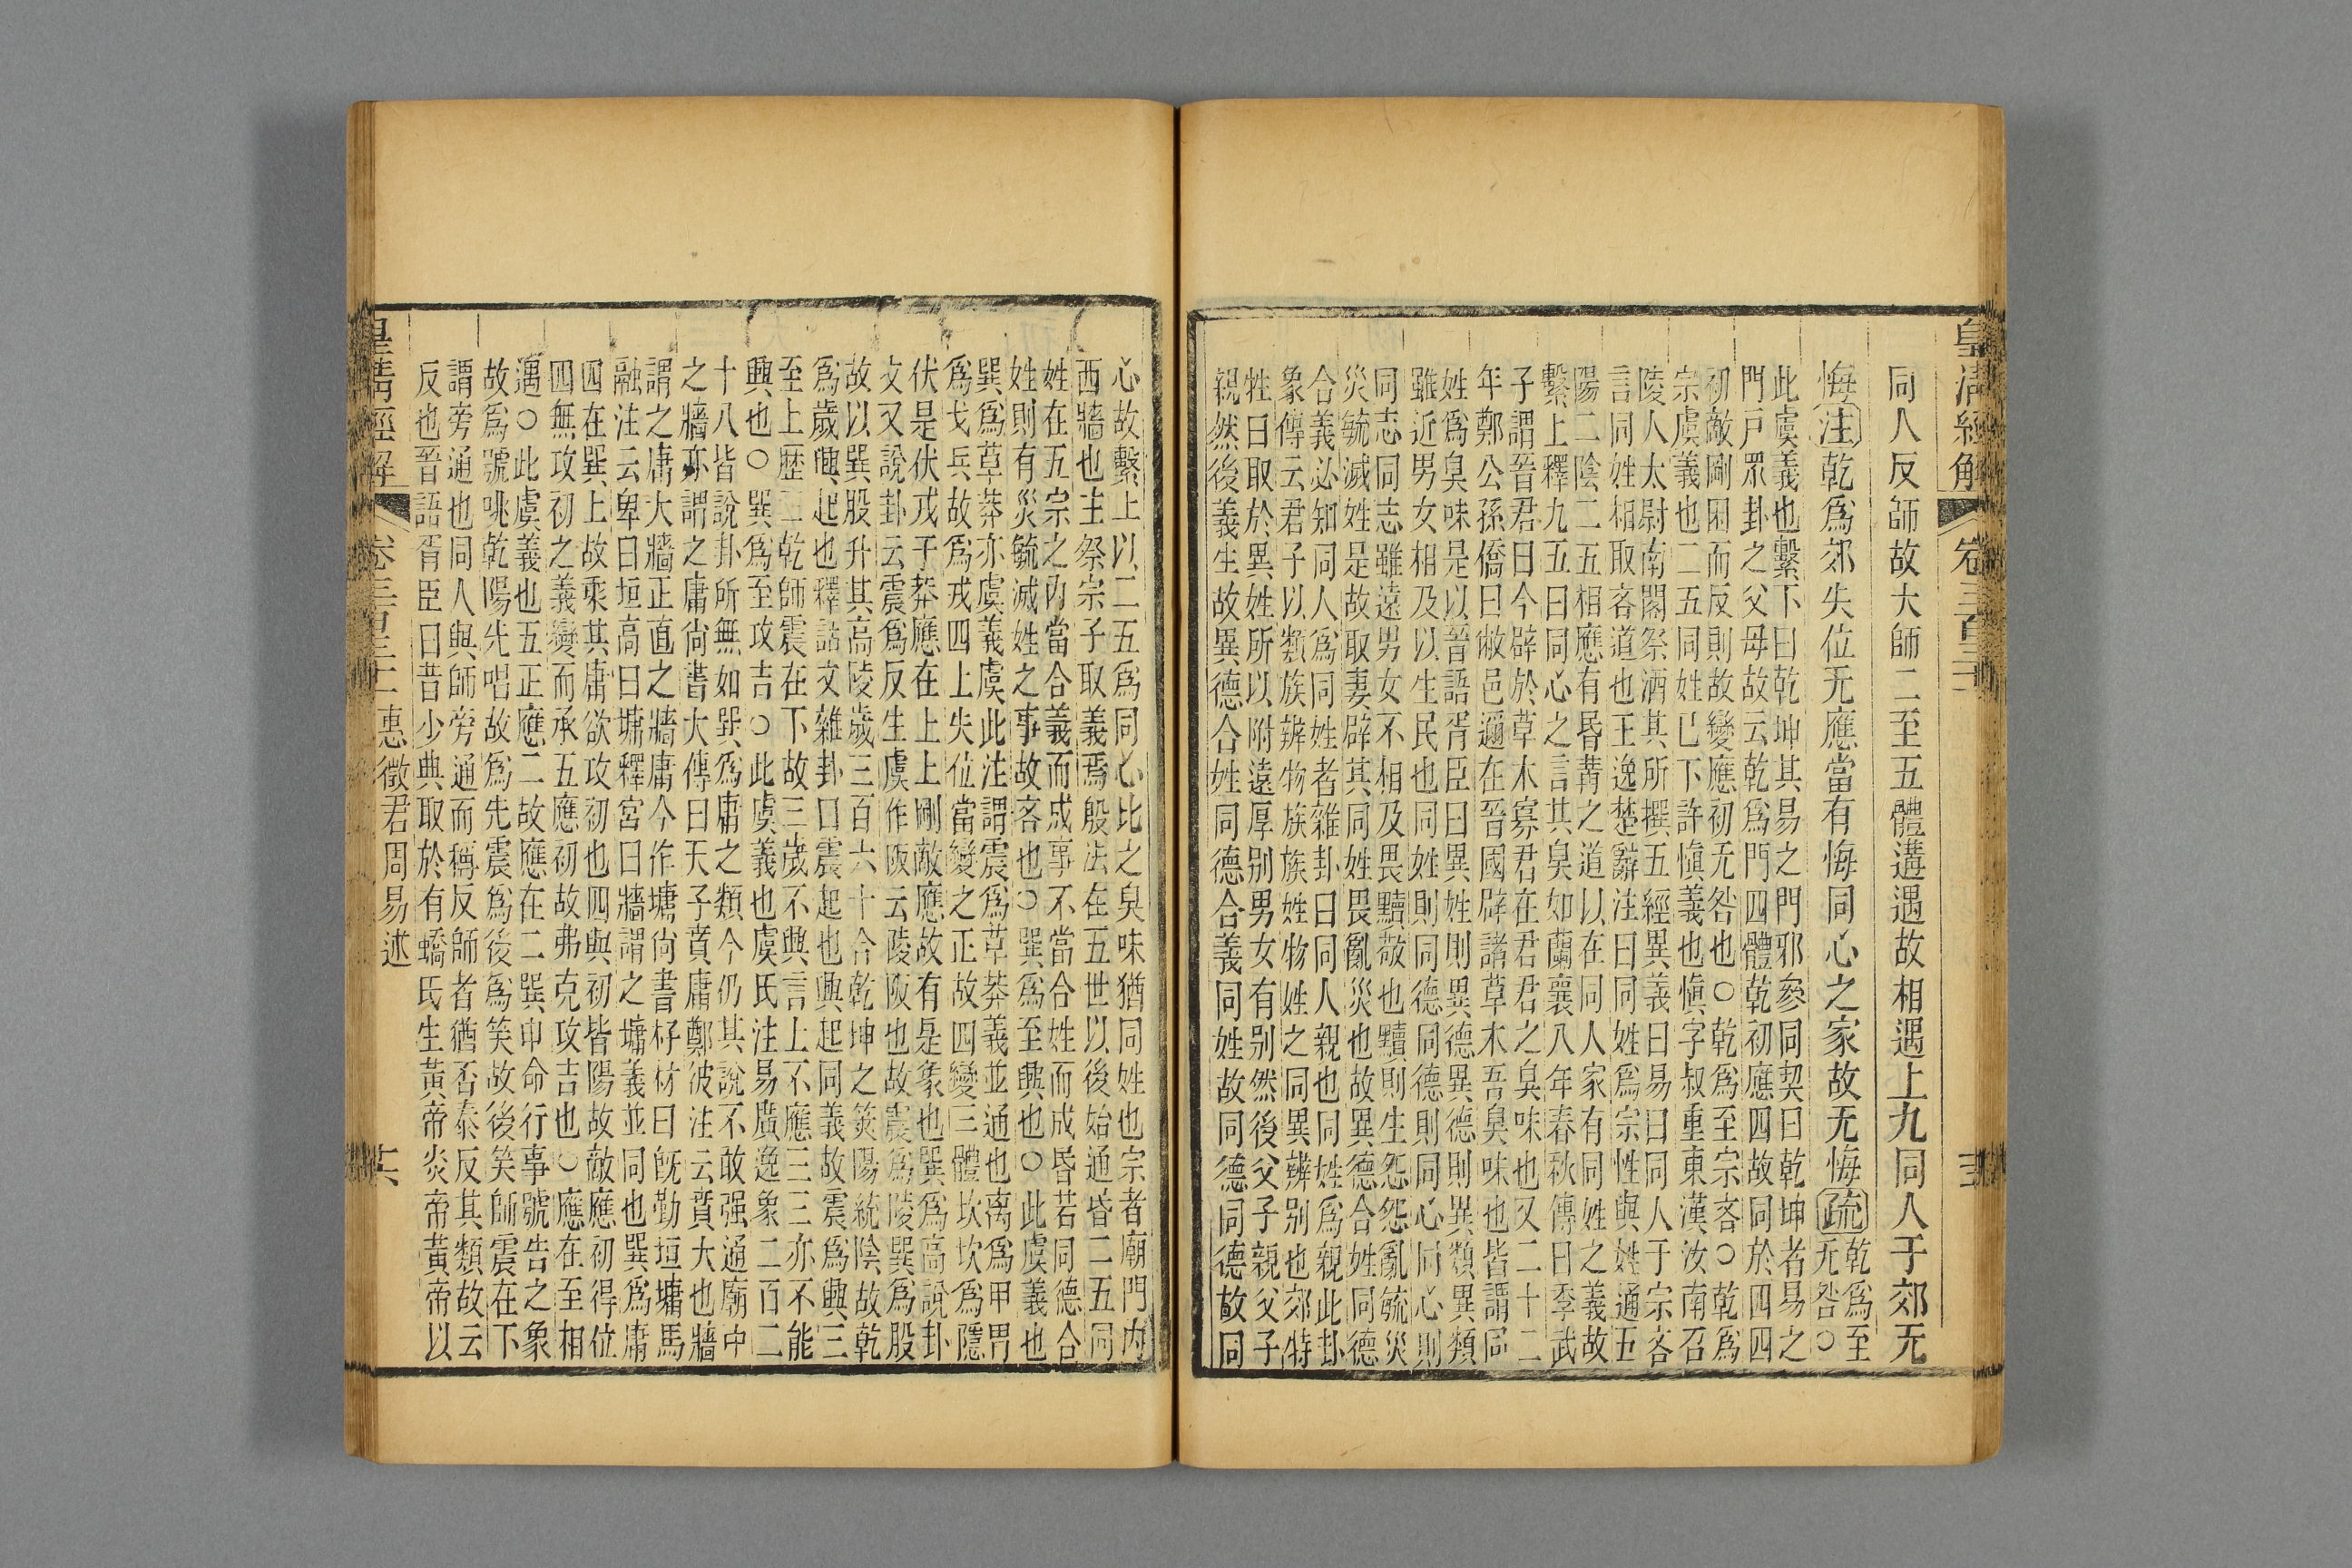 皇清經解 卷三百三十一
同人反師故大師二至五體遘遇故相遇上九同人于郊无
悔注乾爲郊失位无應當有悔同心之家故无悔疏乾爲至
无咎○
此虞義也繫下曰乾坤其易之門邪參同契曰乾坤者易之
門戸眾卦之父毋故云乾爲門四體乾初應四故同於四四
初敵剛困而反則故變應初无咎也○乾爲至宗吝○乾爲
宗虞義也二五同姓已下許愼義也愼字叔重東漢汝南召
陵人太尉南閣祭酒其所撰五經異義曰易曰同人于宗吝
言同姓相取吝道也王逸楚辭注曰同姓爲宗性與姓通五
陽二陰二五相應有昏冓之道以在同人家有同姓之義故
繫上釋九五曰同心之言其臭如蘭襄八年春秋傳曰季武
子謂晉君曰今辟於草木寡君在君君之臭味也又二十二
年鄭公孫僑曰敝邑邇在晉國辟諸草木吾臭味也皆謂同
姓爲臭味是以晉語胥臣曰異姓則異德異德則異類異類
雖近男女相及以生民也同姓則同德同德則同心同心則
同志同志雖遠男女不相及畏黷敬也黷則生怨怨亂毓災
災毓滅姓是故取妻辟其同姓畏亂災也故異德合姓同德
合義必知同人爲同姓者雜卦曰同人親也同姓爲親此卦
象傳云君子以類族辨物族族姓物姓之同異辨别也郊特
牲曰取於異姓所以附遠厚别男女有别然後父子親父子
親然後義生故異德合姓同德合義同姓故同德同德故同
心故繫上以二五爲同心比之臭味猶同姓也宗者廟門内
西牆也主祭宗子取義焉殷法在五世以後始通昏二五同
姓在五宗之内當合義而成事不當合姓而成昏若同德合
姓則有災毓滅姓之事故吝也○巽爲至興也○此虞義也
巽爲草莽亦虞義虞此注謂震爲草莽義並通也离爲甲冑
爲戈兵故爲戎四上失位當變之正故四變三體坎坎爲隱
伏是伏戎于莽應在上上剛敵應故有是象也巽爲高說卦
文又說卦云震爲反生虞作阪云陵阪也故震爲陵巽爲股
故以巽股升其高陵歲三百六十合乾坤之筴陽統陰故乾
爲歲興起也釋詁文雜卦曰震起也興起同義故震爲興三
至上歴三乾師震在下故三歲不興言上不應三三亦不能
興也○巽爲至攻吉○此虞義也虞氏注易廣逸象二百二
十八皆說卦所無如巽爲庸之類今仍其說不敢强通廟中
之牆亦謂之庸尚書大傳曰天子賁庸鄭彼注云賁大也牆
謂之庸大牆正直之牆庸今作墉尚書梓材曰旣勤垣墉馬
融注云卑曰垣高曰墉釋宮曰牆謂之墉義並同也巽爲庸
四在巽上故乘其庸欲攻初也四與初皆陽故敵應初得位
四無攻初之義變而承五應初故弗克攻吉也○應在至相
遇○此虞義也五正應二故應在二巽申命行事號告之象
故爲號咷乾陽先唱故爲先震爲後爲笑故後笑師震在下
謂旁通也同人與師旁通而稱反師者猶否泰反其類故云
反也晉語胥臣曰昔少典取於有蟜氏生黃帝炎帝黃帝以
皇清經解 卷三百三十一 惠徵君周易述